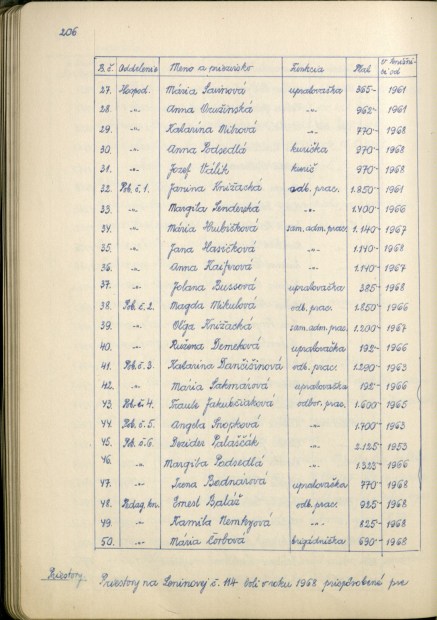 206
B.č. Oddelenie Meno a priezvisko Funkcia Plat v knižni-
ci od
27. Hospod. Mária Savinová upratovačka 365- 1961
28. -„- Anna -„- 962- 1961
29. -„- Katarína Mitrová -„- 770- 1968
30. -„- Anna Podsedlá kurička 970- 1968
31. -„- Jozef Válik kurič 970- 1968
32. Pob. č. 1. Janina Knižacká odb. prac. 1.850- 1961
33. -„- Margita Senderská -„- 1.400- 1966
34. -„- Mária Hrubišková sam. adm. prac. 1.140- 1967
35. -„- Jana Hasičková -„- 1.140- 1968
36. -„- Anna -„- 1.140- 1967
37. -„- Jolana Bussová upratovačka 385- 1968
38. Pob. č. 2. Magda Mikulová odb. prac. 1.850- 1966
39. -„- Oľga Knižacká sam. adm. prac. 1.200- 1967
40. -„- Ružena Demeková upratovačka 192- 1966
41. Pob. č. 3. Katarína Dančišinová odb. prac. 1.290- 1963
42. -„- Mária Sakmárová upratovačka 192- 1966
43. Pob. č. 4. Traute Jakubčiaková odbor. prac. 1.600- 1965
44. Pob. č. 5. Angela Snopková -„- 1.700- 1963
45. Pob. č. 6. Dezider Palaščák -„- 2.125- 1953
46. -„- Margita Podsedlá -„- 1.325- 1966
47. -„- Irena Bodnárová upratovačka 770- 1968
48. Pedag. kn. Ernest Baláž odb. prac. 925- 1968
49. -„- Kamila -„- 825- 1968
50. -„- Mária Čorbová brigádnička 690- 1968
Priestory. Priestory na Leninovej č. 114 boli v roku 1968 prispôsobené pre